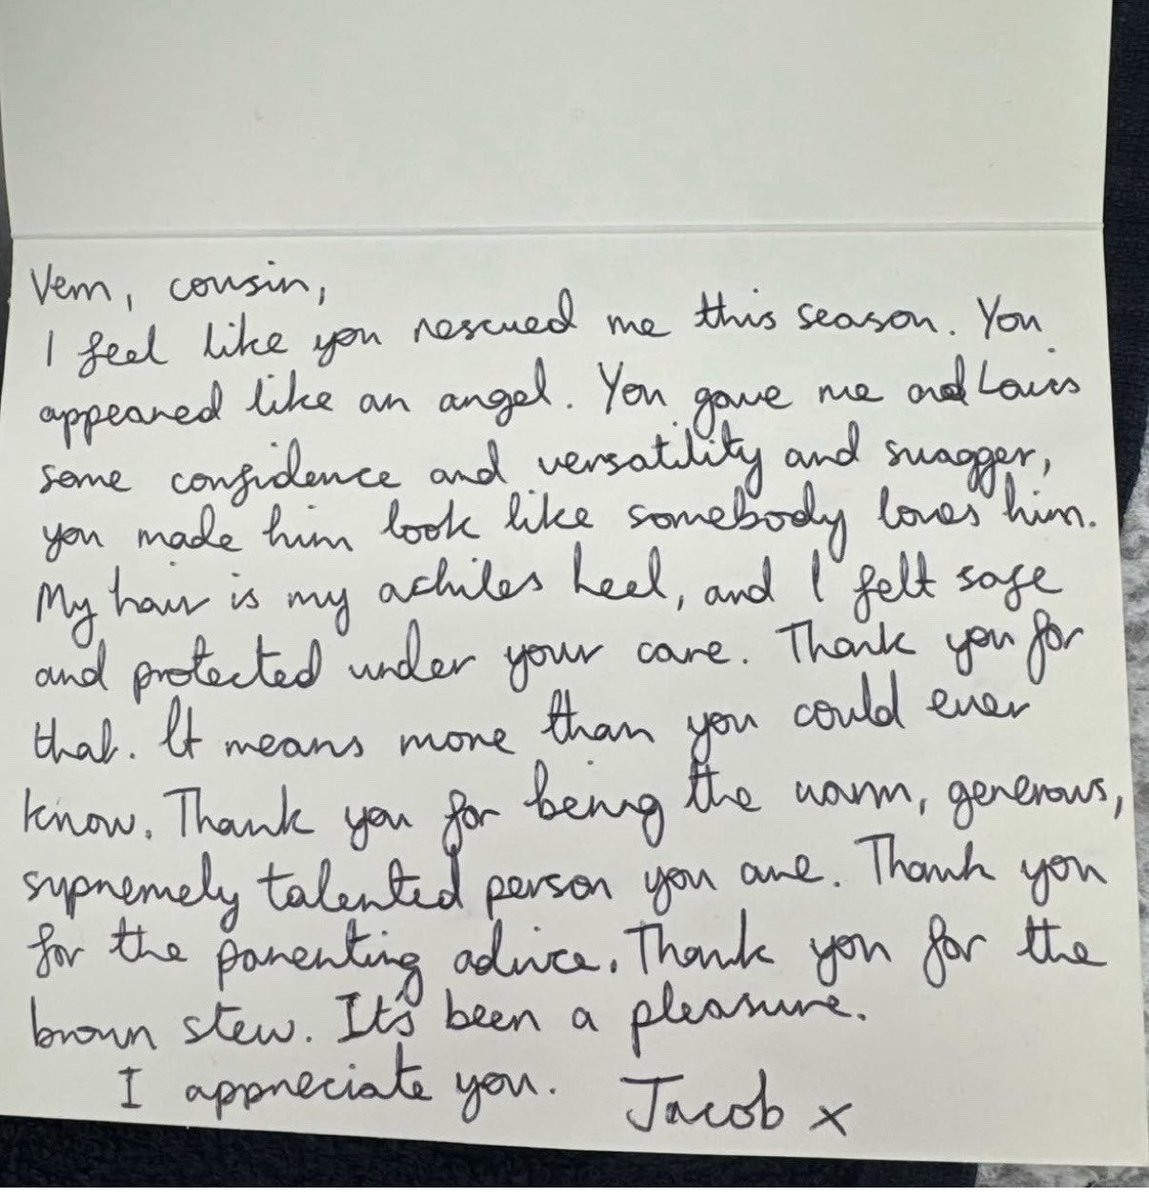 Vem, cousin,
I feel like you rescued me this season. You
appeared like an angel. You gave me and Louis
some confidence and versatility and swagger,
you made him look like somebody loves him.
My hair is my achiles heel, and I felt safe
and protected under your care. Thank you for
that. It means more than you could ever
know. Thank you for being the warm, generous,
supremely talented person you are. Thank you
for the parenting advice. Thank you for the
brown stew. It's been a pleasure.
I appreciate you. Jacob x